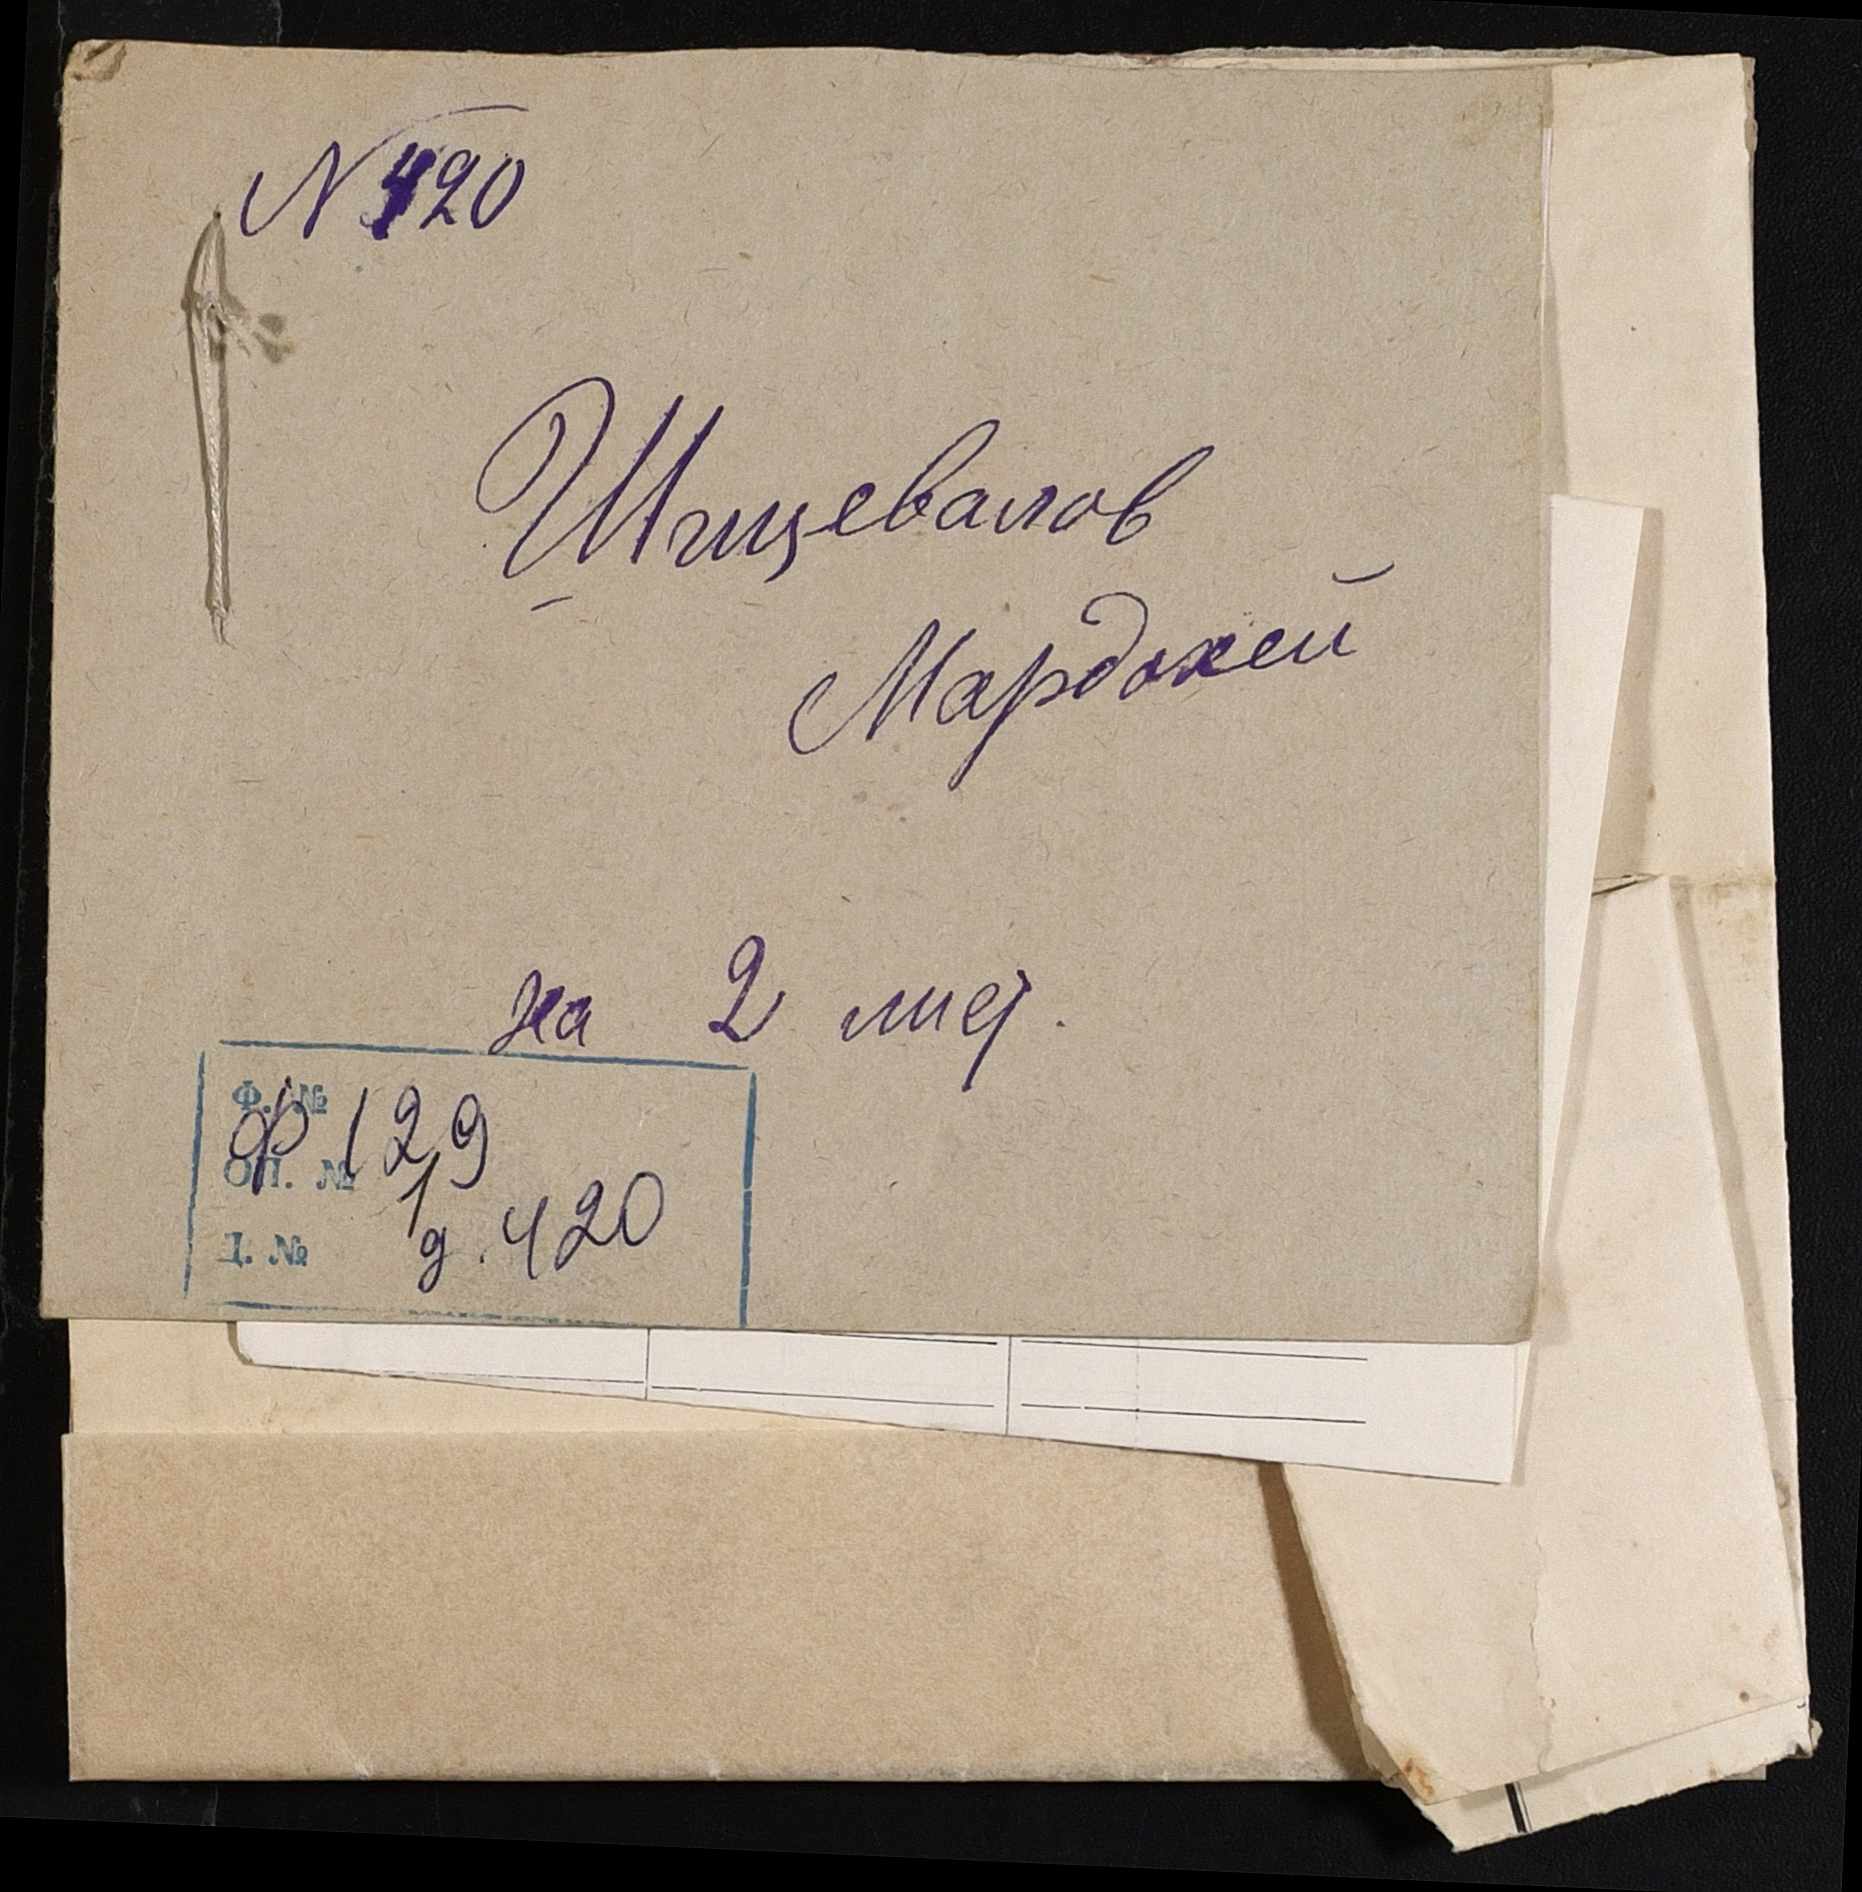 N 420
Шищевалов
Мардохей
на 2 лист.
Ф. №
ф 129
ОП. №
1
Д. №
д. 420